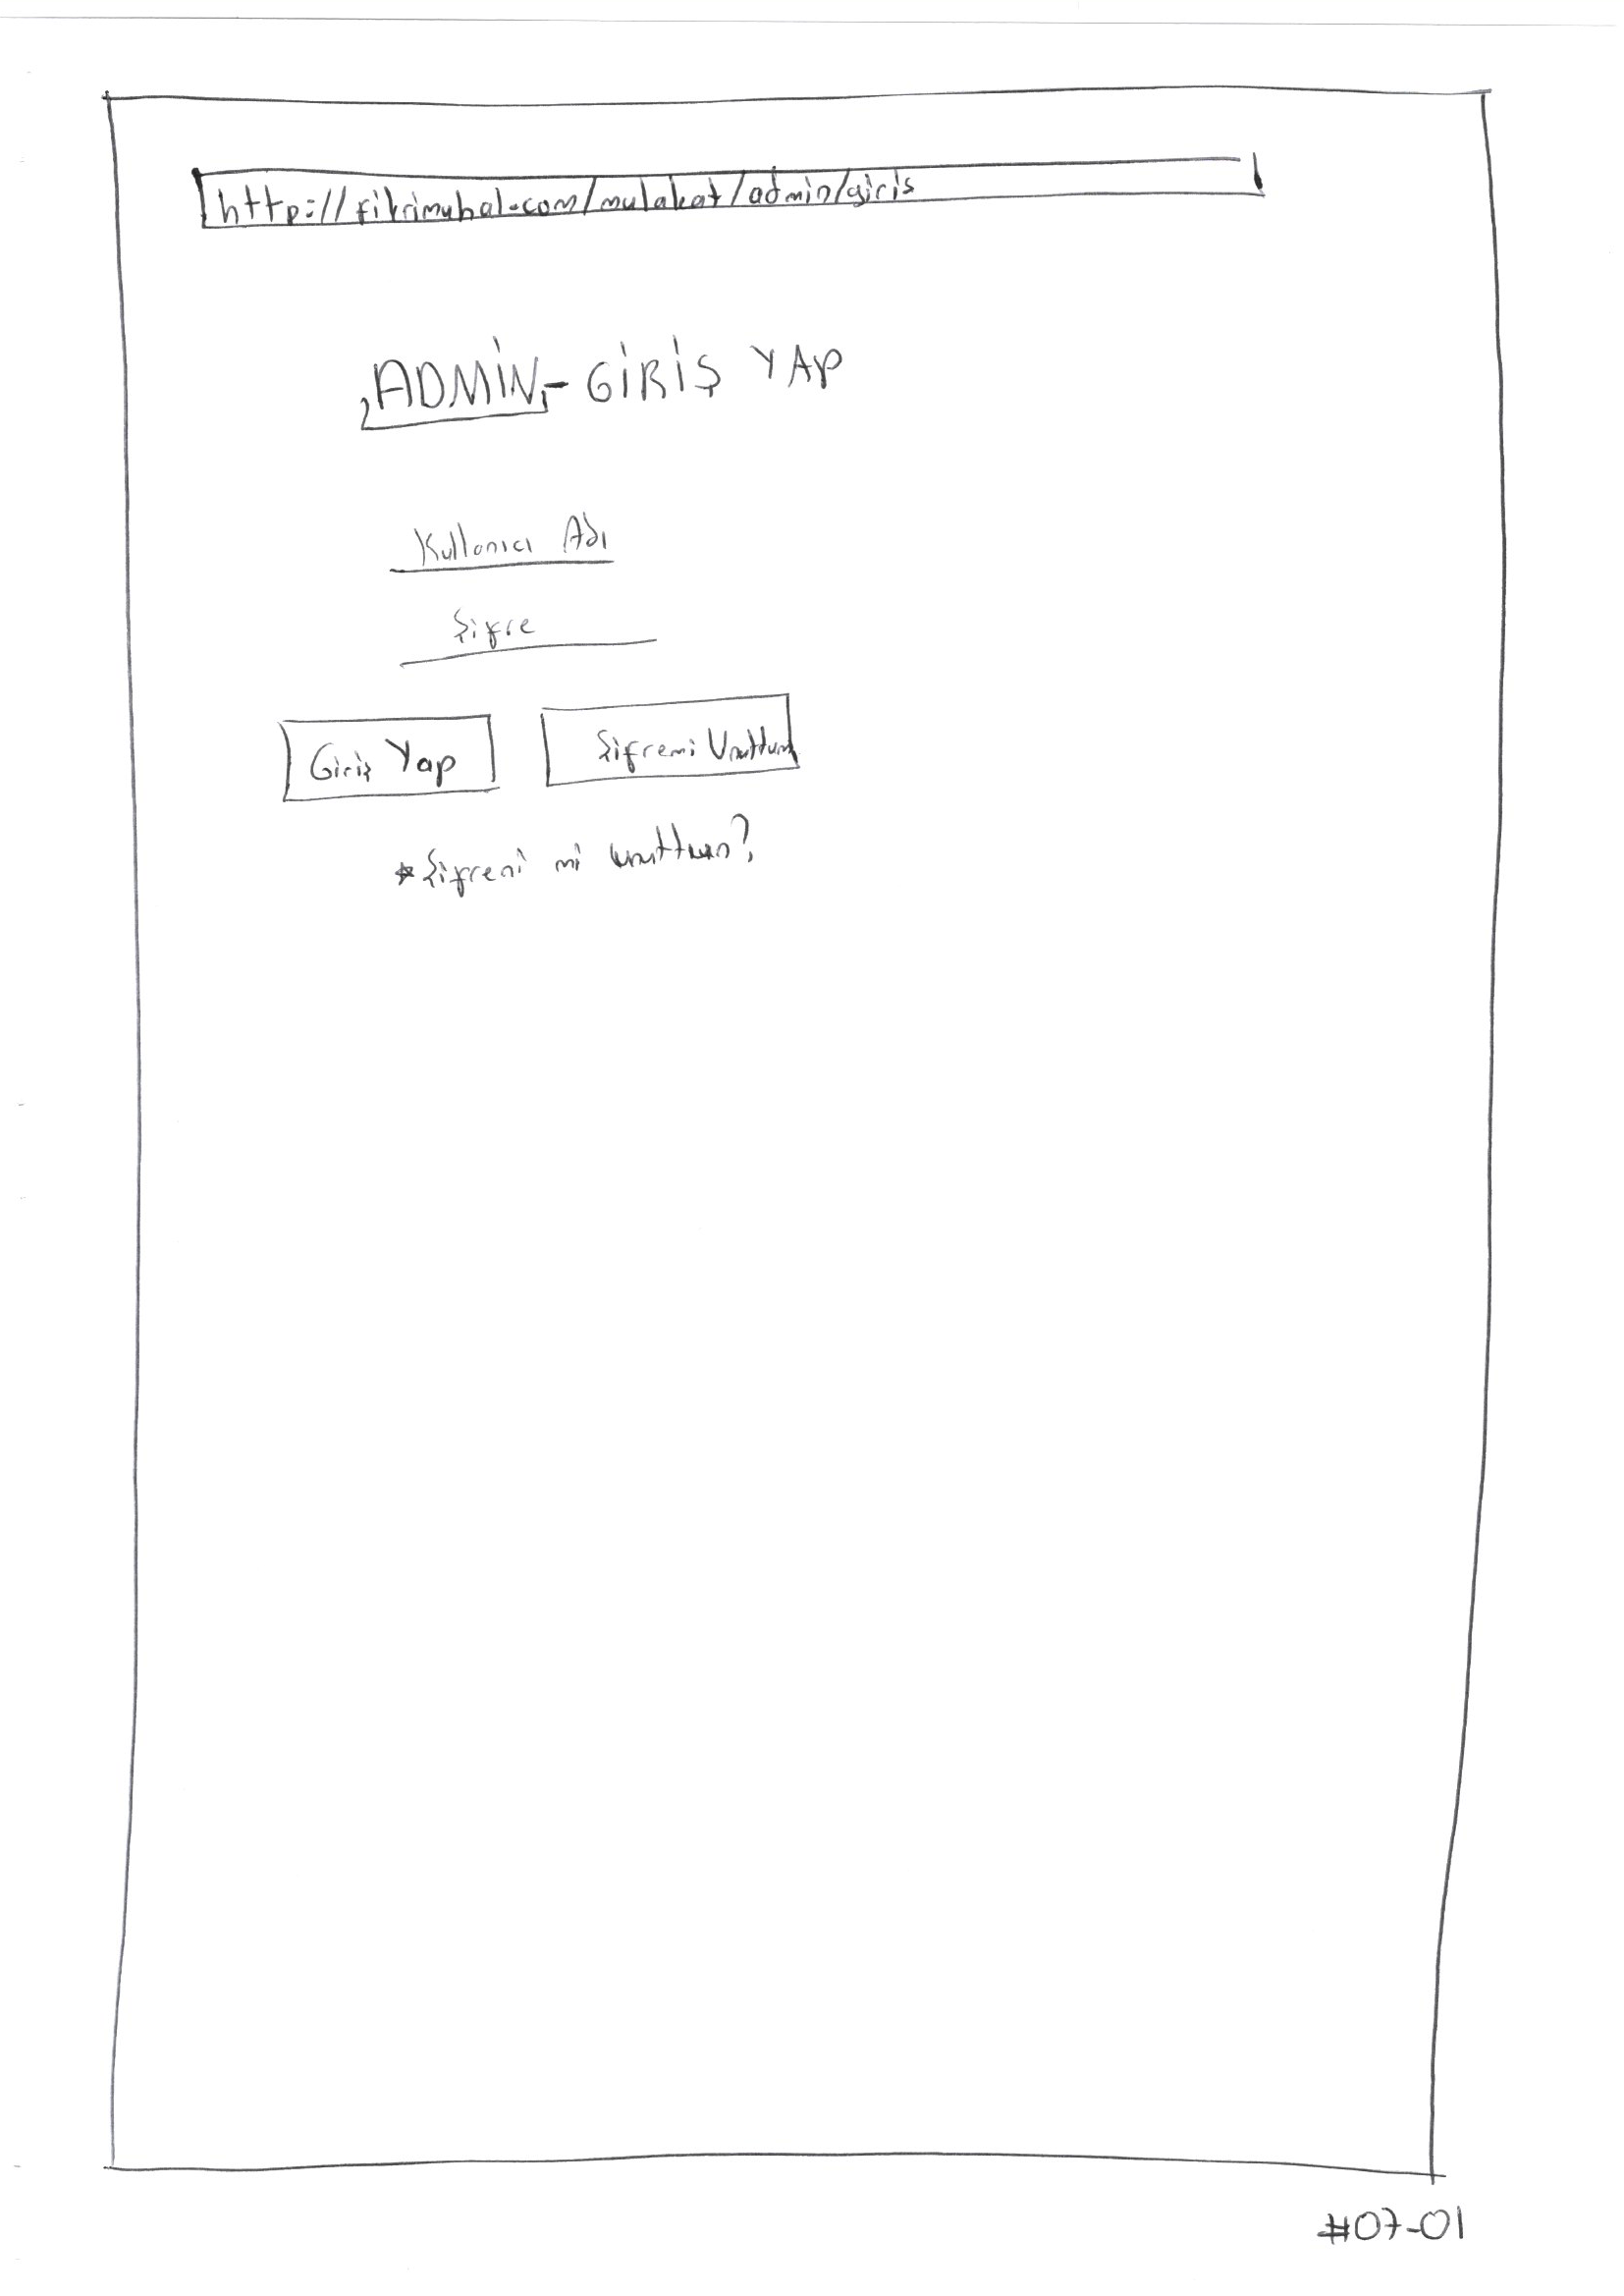 http://fikrimuhal.com/mulakat/admin/giris
ADMİN - GİRİŞ YAP
Kullanıcı Adı
Şifre
Giriş Yap
Şifremi Unuttum
*Şifreni mi unuttun?
#07-01